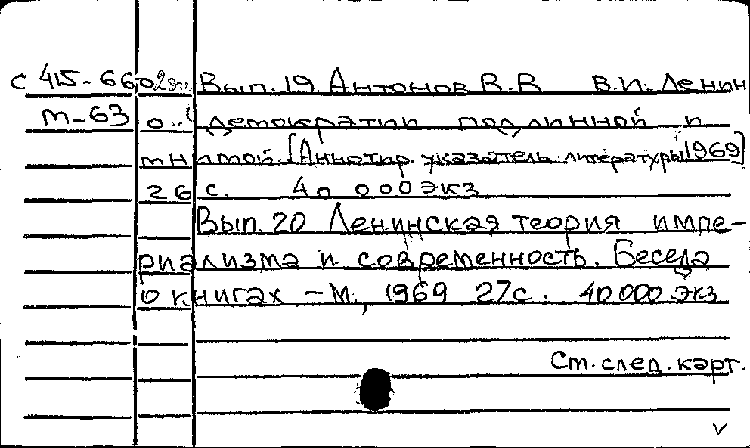 С 415-66 Вып. 19 Антонов В.В В.И. Ленин
т-63 о демократии подлинной и
мнимой. [Аннотир. указатель литературы 1969]
26 с. 40 000 экз
Вып. 20 Ленинская теория импе-
риализма и современность. Беседа
о книгах - М., 1969 27с. 40000 экз
См. след. карт.
v